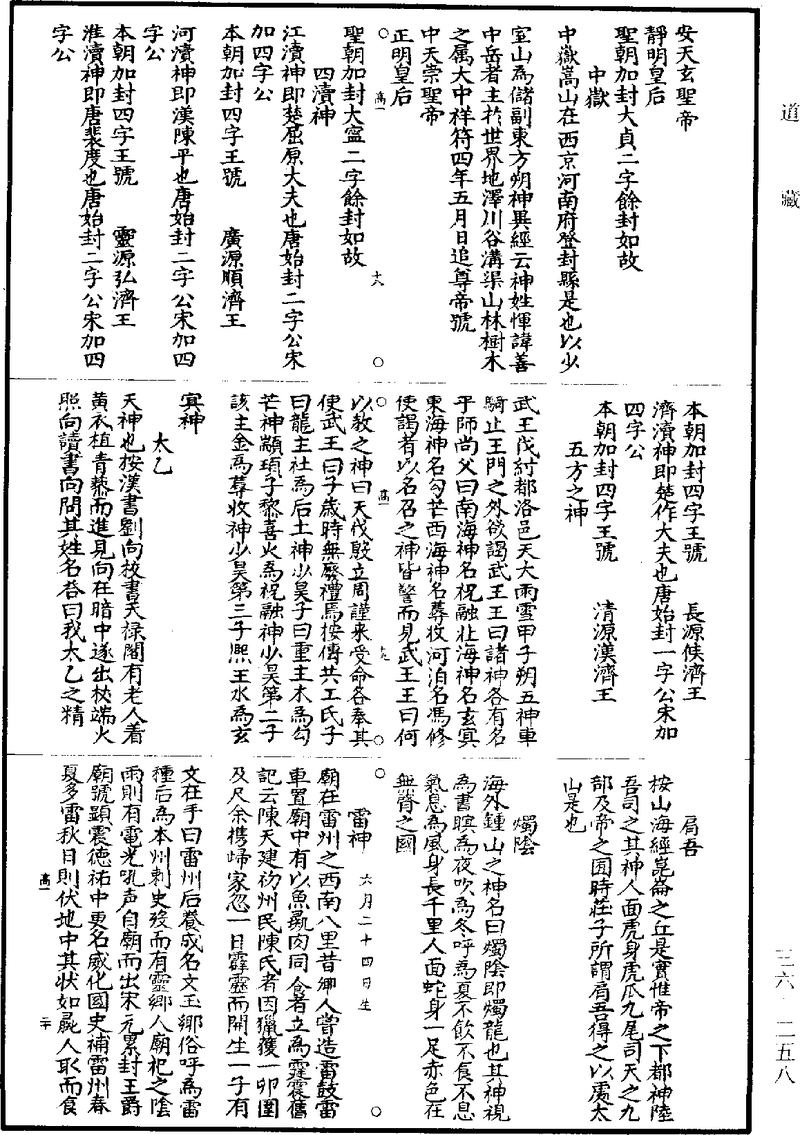 道藏
安天玄聖帝
靜明皇后
聖朝加封大貞二字餘封如故
中嶽
中嶽嵩山在西京河南府登封縣是也以少
室山為儲副東方朔神異經云神姓惲諱善
中岳者主扵世界地澤川谷溝渠山林樹木
之属大中祥符四年五月日追尊帝號
中天崇聖帝
正明皇后
○ 高一 十八 ○
聖朝加封大寧二字餘封如故
四瀆神
江瀆神即楚屈原大夫也唐始封二字公宋
加四字公
本朝加封四字王號 廣源順濟王
河瀆神即漢陳平也唐始封二字公宋加四
字公
本朝加封四字王號 靈源弘濟王
淮瀆神即唐裴度也唐始封二字公宋加四
字公
本朝加封四字王號 長源俠濟王
濟瀆神即楚作大夫也唐始封一字公宋加
四字公
本朝加封四字王號 清源漢濟王
五方之神
武王伐紂都洛邑天大雨雪甲子朔五神車
騎止王門之外欲謁武王王曰諸神各有名
乎師尚父曰南海神名祝融北海神名玄冥
東海神名勾芒西海神名蓐收河泊名馮修
使謁者以名召之神皆警而見武王王曰何
○ 高一 十九 ○
以教之神曰天伐殷立周謹来受命各奉其
使武王曰予歲時無廢禮焉按傳共工氏子
曰龍主社為后土神少昊子曰重主木為勾
芒神顓頊子黎喜火為祝融神少昊第二子
該主金為蓐收神少昊第三子熈王水為玄
㝠神
太乙
天神也按漢書劉向校書天禄閣有老人着
黄衣植青藜而進見向在暗中遂出杖端火
照向讀書向問其姓名荅曰我太乙之精
肩吾
按山海經崑崙之丘是實惟帝之下都神陸
吾司之其神人面虎身虎爪九尾司天之九
部及帝之囿時莊子所謂肩吾得之以處太
山是也
燭陰
海外鍾山之神名曰燭陰即燭龍也其神視
為晝瞑為夜吹為冬呼為夏不飲不食不息
氣息為風身長千里人面蛇身一足赤色在
無膋之國
○ ○
雷神 六月二十四日生
廟在雷州之西南八里昔鄉人嘗造雷鼓雷
車置廟中有以魚彘肉同食者立為霆震舊
記云陳天建初州民陳氏者因獵獲一卵圍
及尺余携歸家忽一日霹靂而開生一子有
文在手曰雷州后養成名文玉鄉俗呼為雷
種后為本州刺史歿而有靈鄉人廟祀之陰
雨則有電光吼声自廟而出宋元累封王爵
廟號顕震德祐中更名威化國史補雷州春
夏多雷秋日則伏地中其状如彘人取而食
高一 二十
三六·二五八